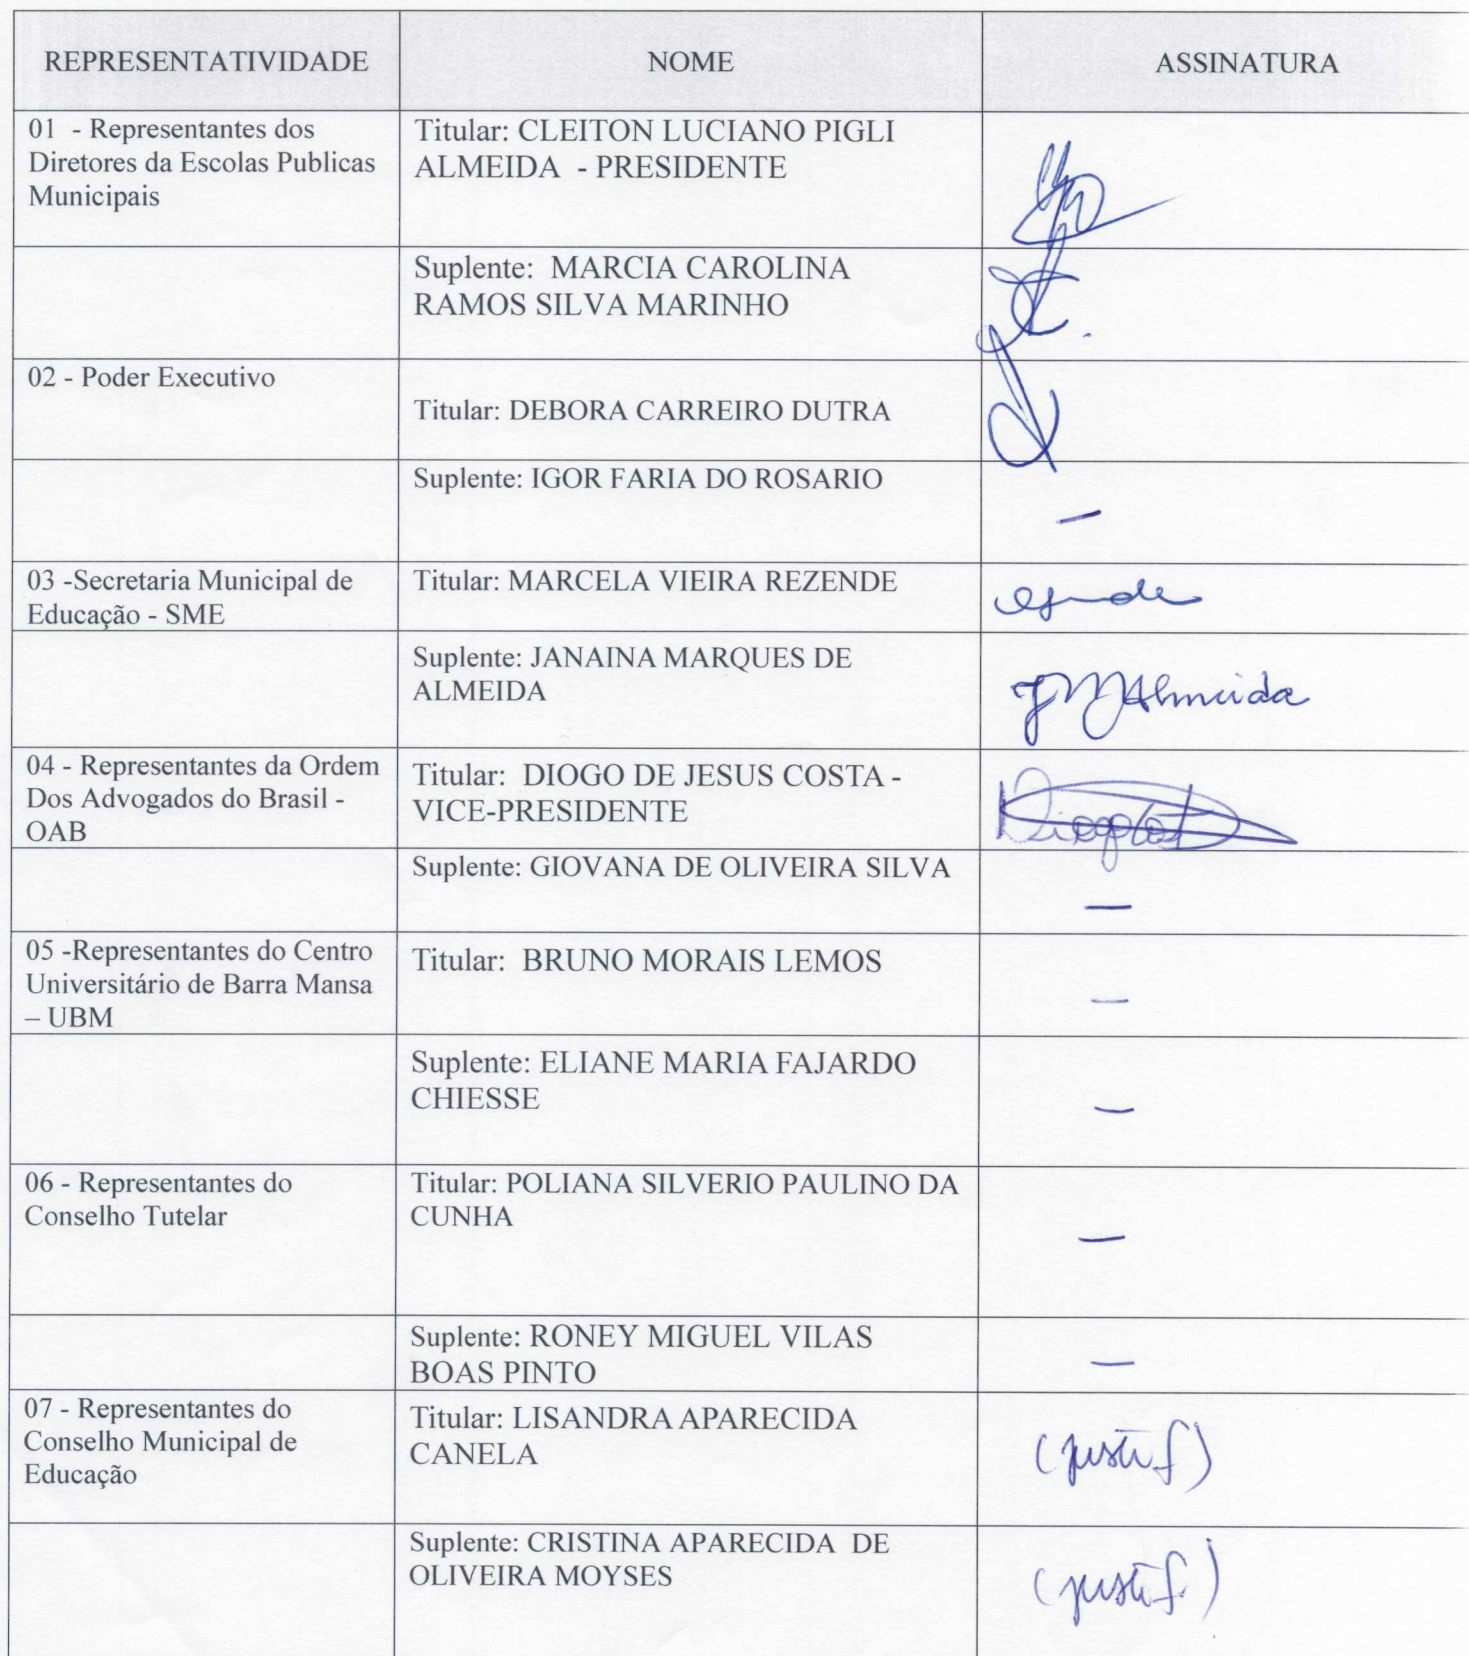 REPRESENTATIVIDADE NOME ASSINATURA
01 - Representantes dos
Diretores da Escolas Publicas
Municipais
Titular: CLEITON LUCIANO PIGLI
ALMEIDA - PRESIDENTE
Suplente: MARCIA CAROLINA
RAMOS SILVA MARINHO
02 - Poder Executivo
Titular: DEBORA CARREIRO DUTRA
Suplente: IGOR FARIA DO ROSARIO
—
03 -Secretaria Municipal de
Educação - SME
Titular: MARCELA VIEIRA REZENDE
Suplente: JANAINA MARQUES DE
ALMEIDA
JMAlmeida
04 - Representantes da Ordem
Dos Advogados do Brasil -
OAB
Titular: DIOGO DE JESUS COSTA -
VICE-PRESIDENTE
Suplente: GIOVANA DE OLIVEIRA SILVA
—
05 -Representantes do Centro
Universitário de Barra Mansa
– UBM
Titular: BRUNO MORAIS LEMOS
—
Suplente: ELIANE MARIA FAJARDO
CHIESSE
—
06 - Representantes do
Conselho Tutelar
Titular: POLIANA SILVERIO PAULINO DA
CUNHA
—
Suplente: RONEY MIGUEL VILAS
BOAS PINTO
—
07 - Representantes do
Conselho Municipal de
Educação
Titular: LISANDRA APARECIDA
CANELA
(justif)
Suplente: CRISTINA APARECIDA DE
OLIVEIRA MOYSES
(justif.)